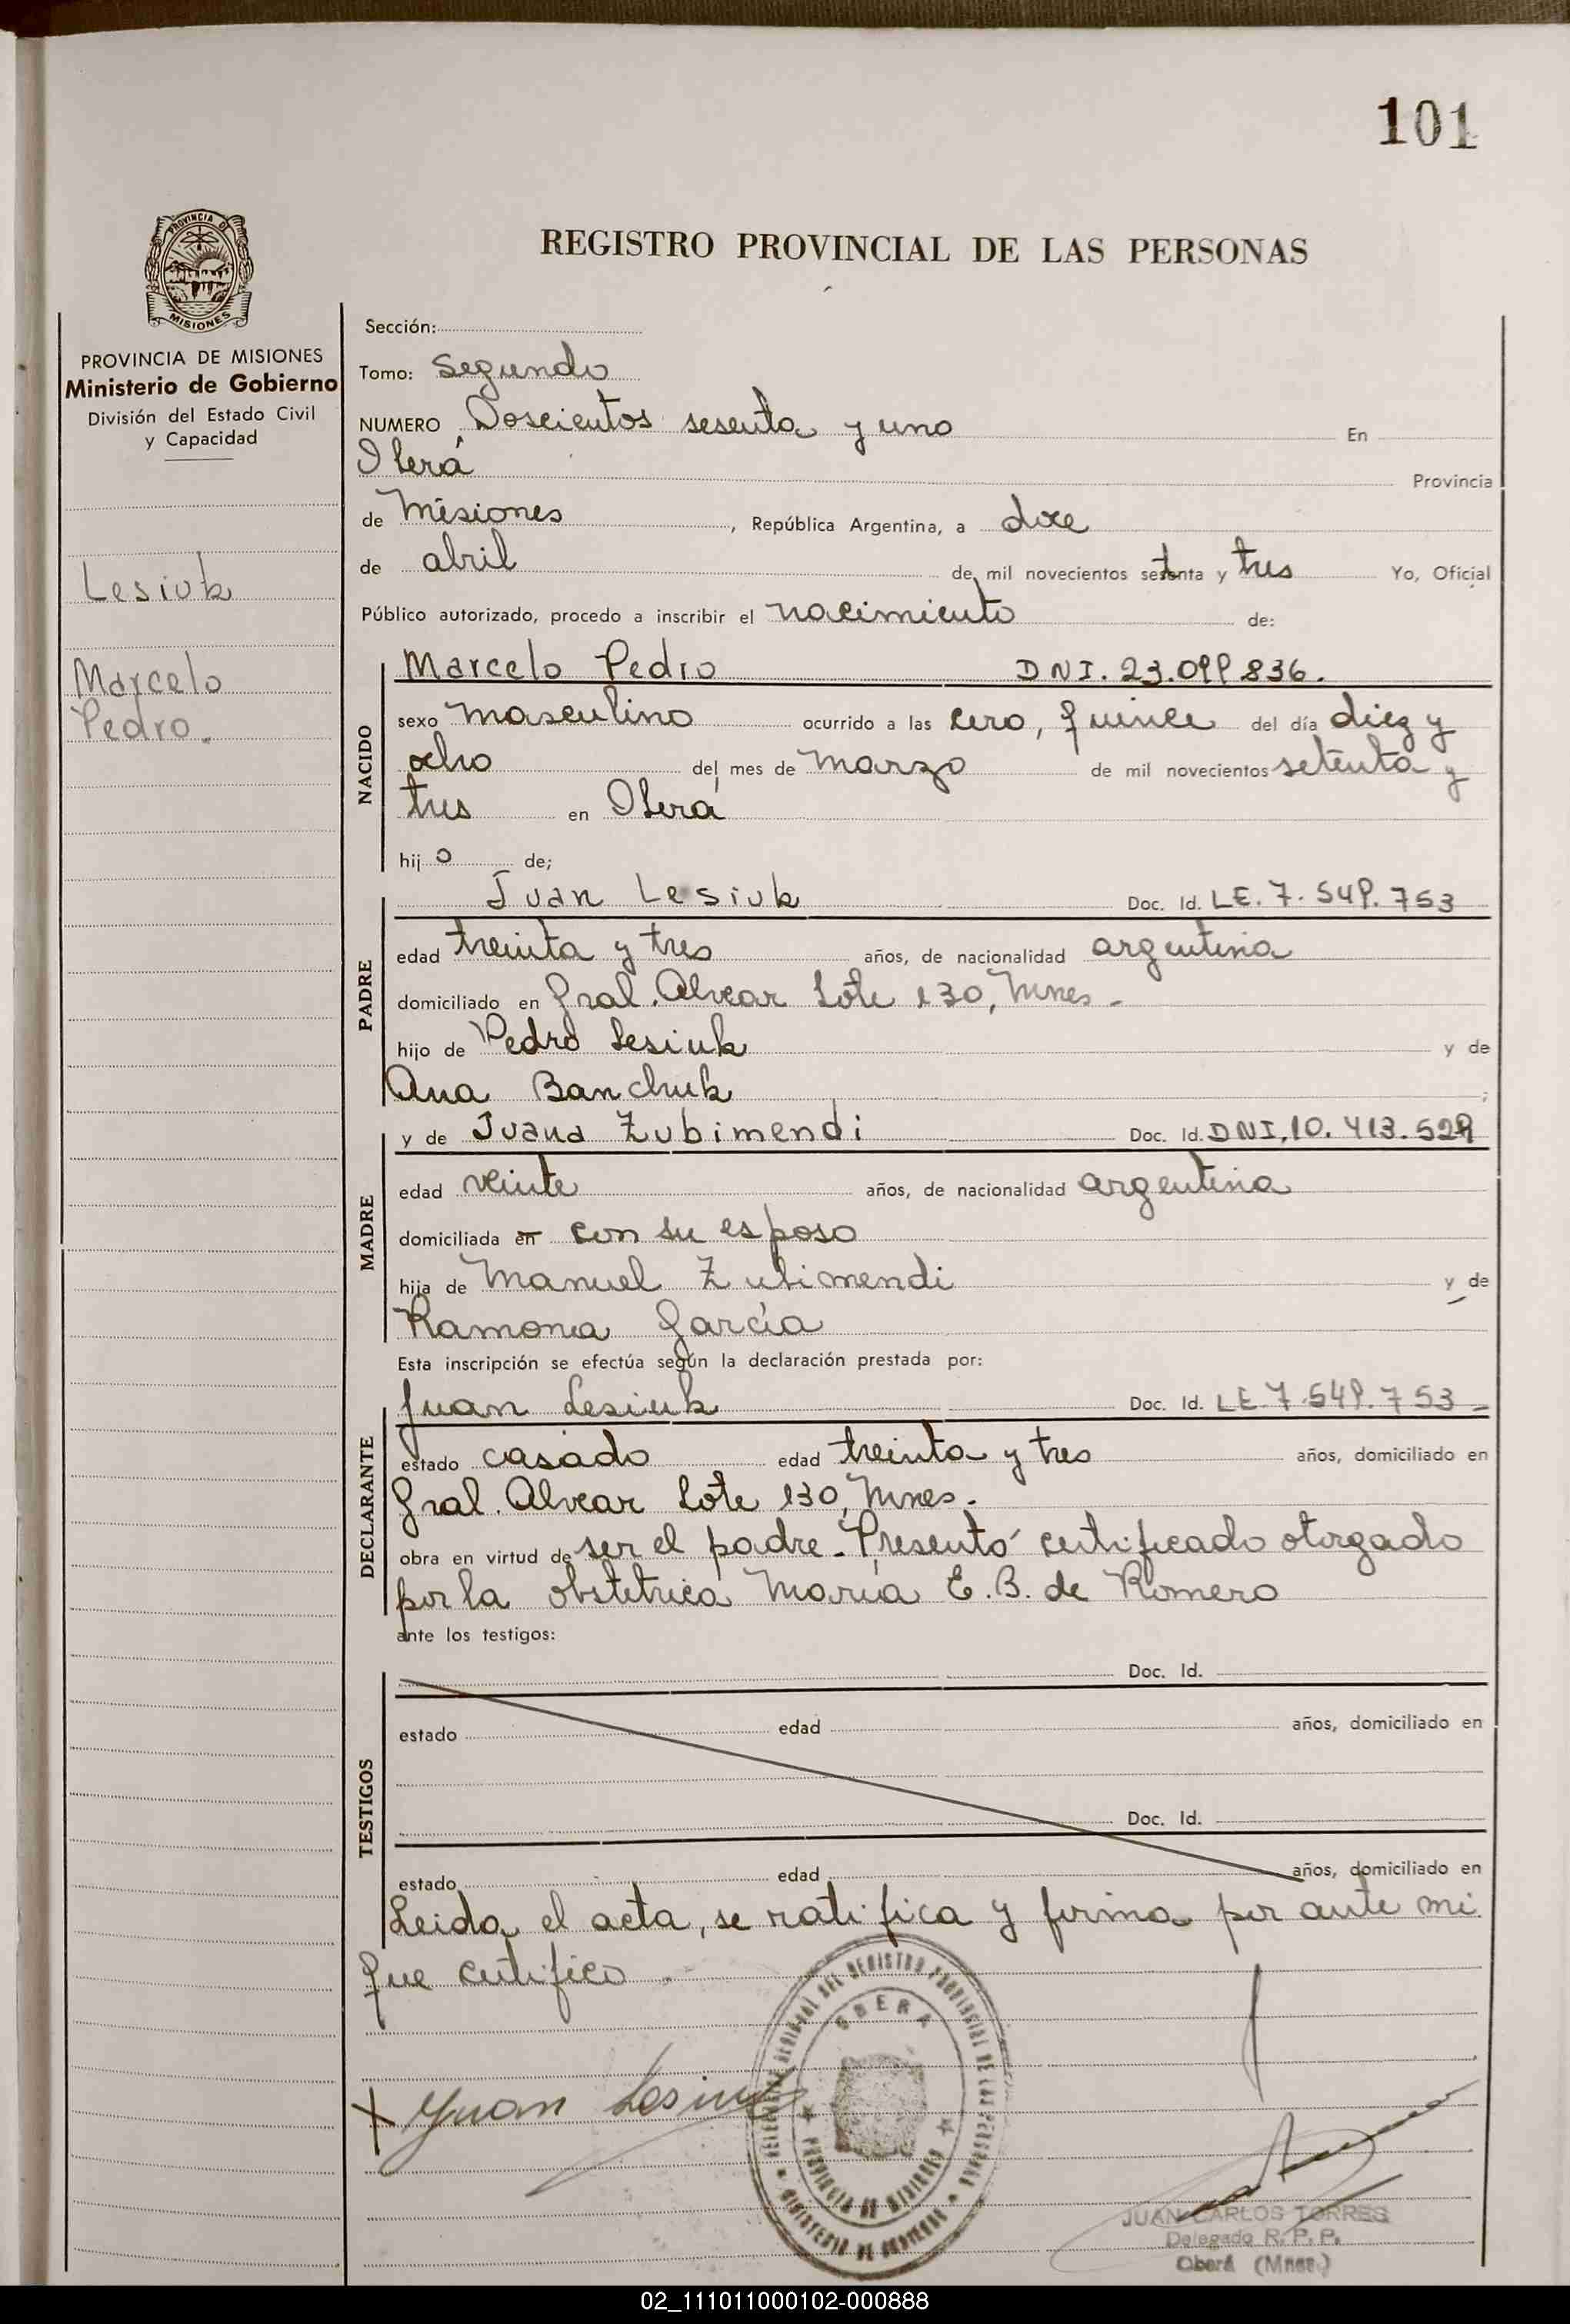 101
PROVINCIA DE
MISIONES
REGISTRO PROVINCIAL DE LAS PERSONAS
PROVINCIA DE MISIONES
Ministerio de Gobierno
División del Estado Civil
y Capacidad
Lesiuk
Marcelo
Pedro.
Sección:
Tomo: Segundo
NUMERO Doscientos sesenta y uno En
Oberá Provincia
de Misiones, República Argentina, a doce
de abril de mil novecientos setenta y tres Yo, Oficial
Público autorizado, procedo a inscribir el nacimiento de:
NACIDO
Marcelo Pedro DNI. 23.099836.
sexo masculino ocurrido a las cero, quince del día diez y
ocho del mes de marzo de mil novecientos setenta y
tres en Oberá
hijo de;
PADRE
Juan Lesiuk Doc. Id. LE. 7.549.753
edad treinta y tres años, de nacionalidad argentina
domiciliado en Gral. Alvear Lote 130, Mnes.-
hijo de Pedro Lesiuk y de
Ana Banchuk;
MADRE
y de Juana Zubimendi Doc. Id. DNI, 10.413.529
edad veinte años, de nacionalidad argentina
domiciliada en con su esposo
hija de Manuel Zubimendi y de
Ramona García
Esta inscripción se efectúa según la declaración prestada por:
DECLARANTE
Juan Lesiuk Doc. Id. LE 7.549.753-
estado casado edad treinta y tres años, domiciliado en
Gral. Alvear Lote 130, Mnes.
obra en virtud de ser el padre.- Presentó certificado otorgado
por la obstetrica María E. B. de Romero
ante los testigos:
TESTIGOS
Doc. Id.
estado edad años, domiciliado en
Doc. Id.
estado edad años, domiciliado en
Leida el acta, se ratifica y firma por ante mi
que certifico.
DELEGACION REGIONAL DEL REGISTRO PROVINCIAL DE LAS PERSONAS
OBERA
PROVINCIA DE MISIONES
MINISTERIO DE GOBIERNO
x Juan Lesiuk
JUAN CARLOS TORRES
Delegado R. P. P.
Oberá (Mnes.)
02_111011000102-000888